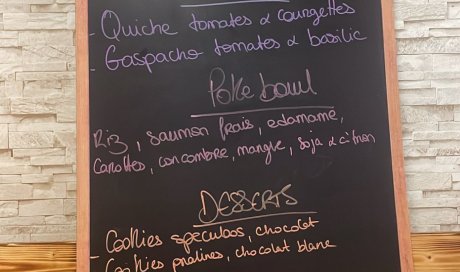 - Quiche tomates & courgettes
- Gaspacho tomates & basilic
Poke bowl
Riz, saumon frais, edamame,
carottes, concombre, mangue, soja & citron
DESSERTS
- Cookies speculoos, chocolat
Cookies pralines, chocolat blanc